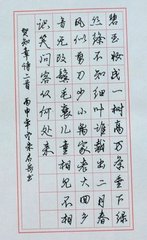 碧玉妆成一树高万条垂下绿
丝绦不知细叶谁裁出二月春
风似剪刀少小离家老大回乡
音无改鬓毛衰儿童相见不相
识笑问客从何处来
贺知章诗二首 丙申年